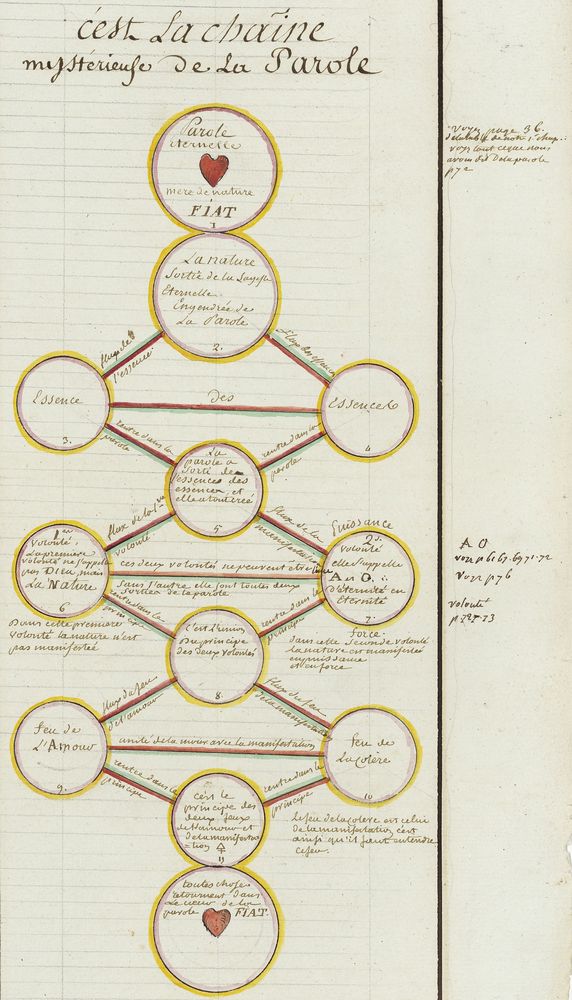 c'est La chaîne
mystérieuse de La Parole
Parole
éternelle
mere de nature
FIAT
1
La nature
Sortie de la Sagesse
Eternelle.
Engendrée de
La Parole
2.
flux de
l'essence
flux des essences
Essence
3.
Des
Essences
4
rentre dans la
parole
rentre dans la
parole
La
parole a
sorti des
essences des
essences, et
elle a tout créé
5
flux de la
volonté
flux de la
manifestation
volonté
La premiere
volonté ne s'appelle
pas Dieu, mais
La Nature
6
Puissance
2e.
volonté
elle s'appelle
A et O.
D'éternité en
Eternité
7.
force.
ces deux volontés ne peuvent être l'une
sans l'autre elle sont toutes deux
sorties de la parole
Dans cette premiere
volonté la nature n'est
pas manifestée
rentre dans le
principe
rentre dans le
principe
dans cette seconde volonté
la nature est manifestée
en puissance
et en force
c'est l'union
Du principe
des deux volontés
8.
flux du feu
de l'amour
flux du feu
de la manifestation
feu de
L'Amour
9.
unité de la avec la manifestation
feu de
La Colere
10
rentre dans le
principe
rentre dans le
principe
c'est le
principe des
deux feux
de l'amour et
de la manifesta
=tion
11
le feu de la colere est celui
de la manifestation c'est
ainsi qu'il faut entendre
ce feu.
toutes choses
retournent dans
Le coeur de la
parole FIAT.
voyez page 36.
de notre 1. chap.
voyez tout ce que nous
avons dit de la parole
p 72
A O
voyez p 61 67. 69 71. 72
Voyez p 76
volonté
p 72 73